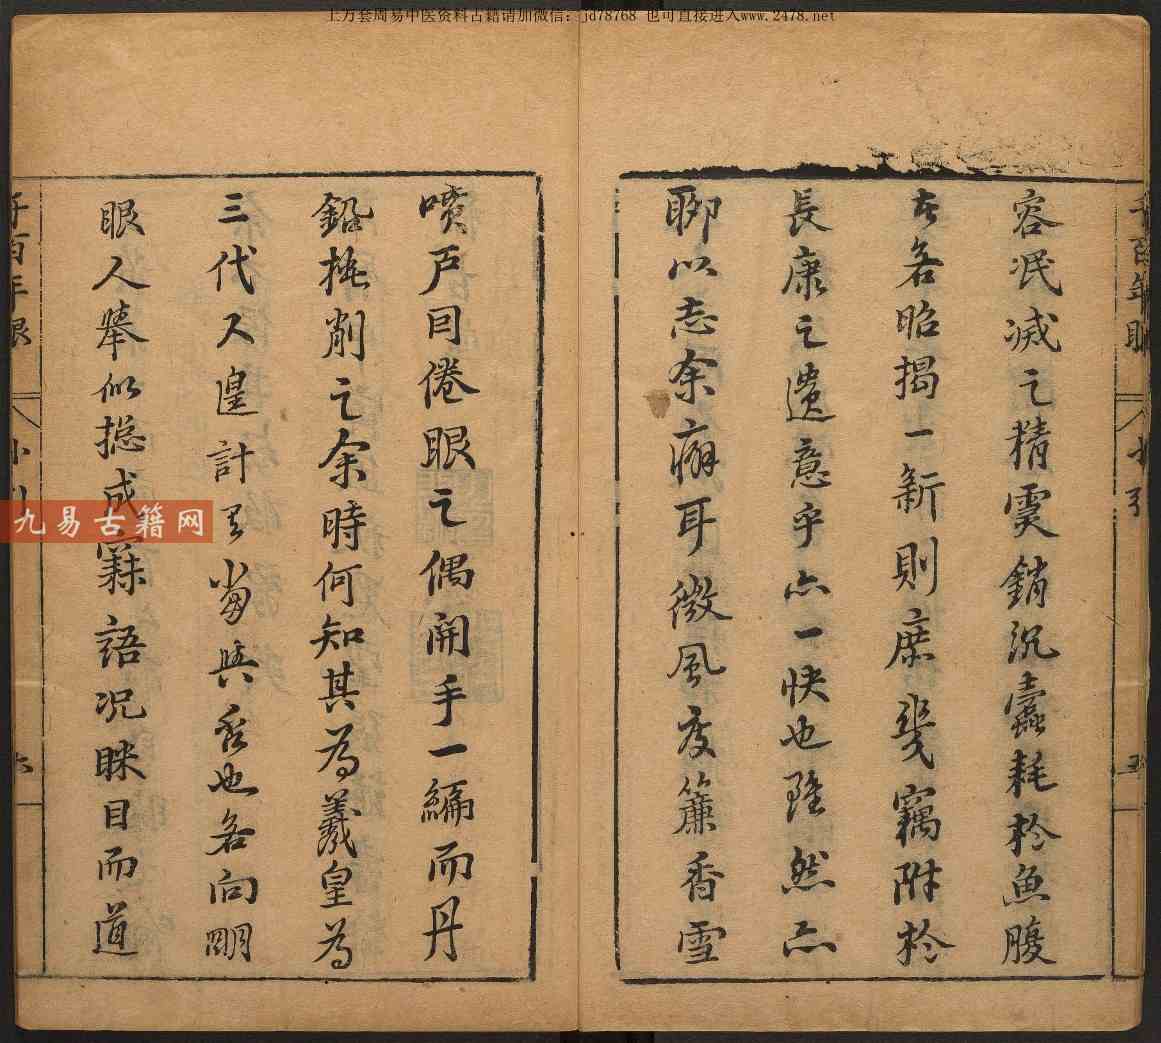 上万套周易中医资料古籍请加微信：jd78768 也可直接进入www.2478.net
千百年眼 小引 五
容泯滅之精靈銷沉蠹耗於魚腹
者各昭揭一新則庶幾竊附於
長康之遺意乎亦一快也雖然亦
聊以志余癖耳微風度簾香雪
噴戶目倦眼之偶開手一編而丹
鉛掩削之余時何知其為羲皇為
三代人遑計其當與否也各向明
眼人舉似揔成寐語況眯目而道
千百年眼 小引 六
九易古籍网